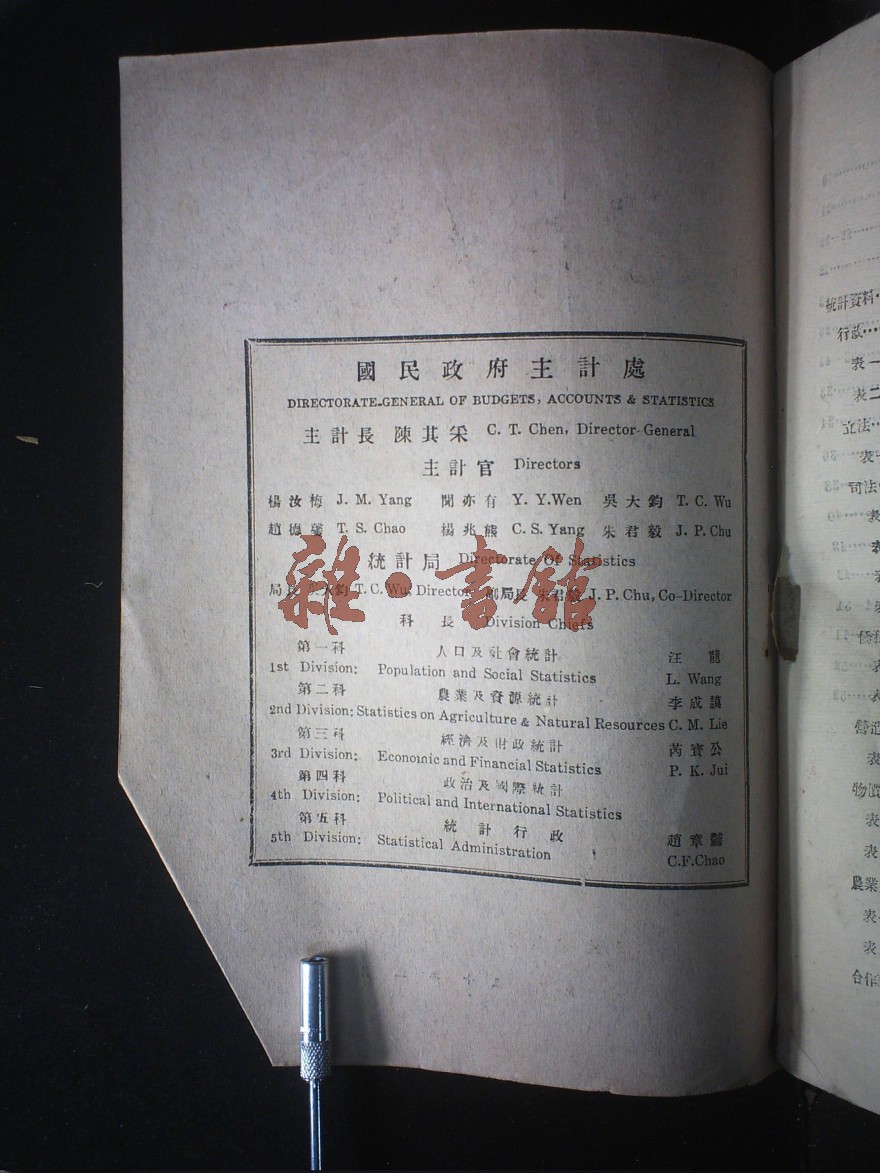 國民政府主計處
DIRECTORATE-GENERAL OF BUDGETS, ACCOUNTS & STATISTICS
主計長 陳其采 C. T. Chen, Director-General
主計官 Directors
楊汝梅 J. M. Yang 聞亦有 Y. Y. Wen 吳大鈞 T. C. Wu
趙德馨 T. S. Chao 楊兆熊 C. S. Yang 朱君毅 J. P. Chu
統計局 Directorate Of Statistics
局長 大鈞 T. C. Wu, Director 副局長 朱君毅 J. P. Chu, Co-Director
雜·書館
科長 Division Chiefs
第一科 人口及社會統計 汪龍
1st Division: Population and Social Statistics L. Wang
第二科 農業及資源統計 李成謨
2nd Division: Statistics on Agriculture & Natural Resources C. M. Lie
第三科 經濟及財政統計 芮寶公
3rd Division: Economic and Financial Statistics P. K. Jui
第四科 政治及國際統計
4th Division: Political and International Statistics
第五科 統計行政 趙章黼
5th Division: Statistical Administration C.F.Chao
統計資料
行政
表一
表二
立法
表
司法
表
表
表
表
表
表
表
營造
表
物價
表
表
農業
表
表
合作